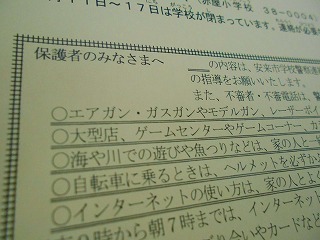 赤屋小学校 38-0004
月11日～17日は学校が閉まっています。連絡が必要
保護者のみなさまへ
の内容は、安来市学校警察連
の指導をお願いいたします。
また、不審者・不審電話は、警
○エアガン・ガスガンやモデルガン、レーザーポイ
○大型店、ゲームセンターやゲームコーナー、カラ
○海や川での遊びや魚つりなどは、家の人と一
○自転車に乗るときは、ヘルメットを必ずか
○インターネットの使い方は、家の人とよく
9時から朝7時までは、インターネッ
り合いやカードなど